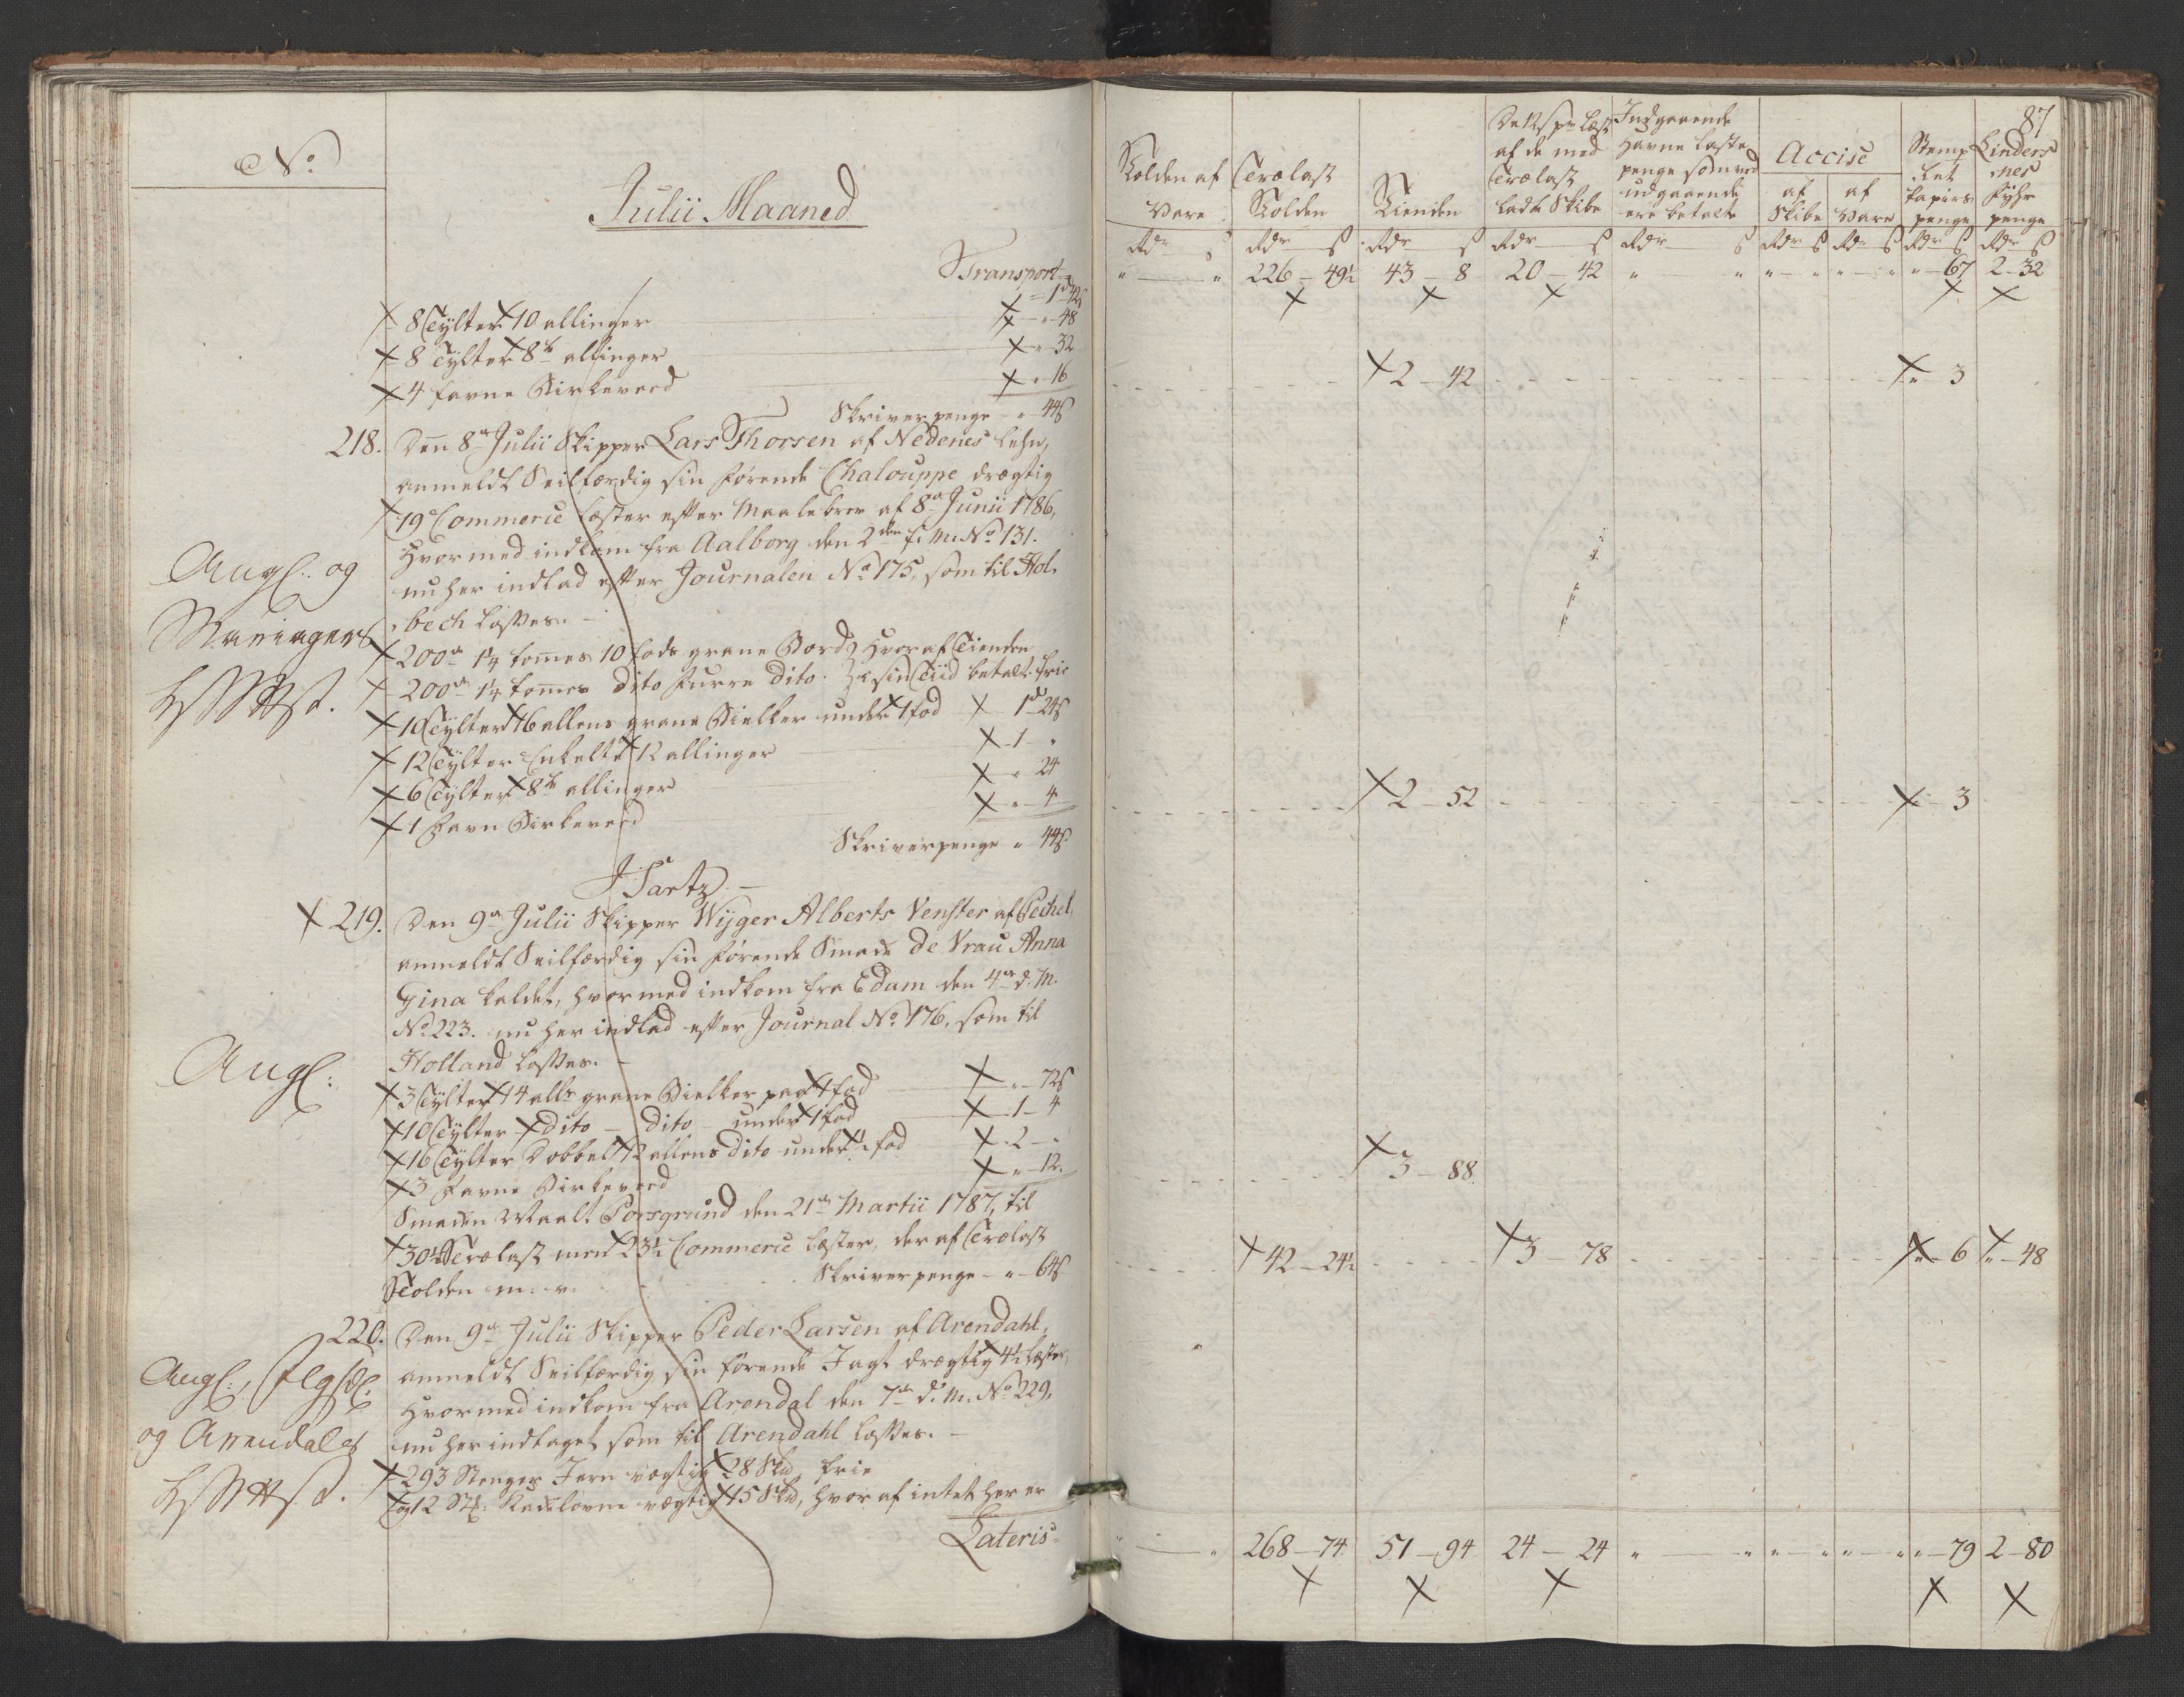 No.
Julii Maaned
Transport
1 d 42 s
8 Tylter 10 allinger " 48
8 Tylter 8te allinger " 32
4 favne Birkeveed " 16
Skriverpenge " 44 s
218. Den 8de Julii Skipper Lars Thorsen af Nedenes Lehn,
anmeldt Seilfærdig sin førende Chalouppe drægtig
19 Commerce læster efter Maalebrev af 8de Junii 1786,
Hvormed indkom fra Aalborg den 2den h: m: No 131.
nu her indlad efter Journalen No 175, som til Hol-
bech losses. -
Angl: og
200de 1¼ tommes 10 fods grane Bord, Hvoraf Tienden
200de 1¼ tommes dito furre dito. i sin Tiid betalt. frie
10 Tylter 16 allens grane Bielker under 1 fod 1 d 24 s
12 Tylter Enkelte 12 allinger 1 "
6 Tylter 8te allinger " 24
1 Favn Birkeveed " 4
Skriverpenge " 44 s
219. Den 9de Julii Skipper Wijger Alberts Venster af Pechel,
anmeldt Seilfærdig sin førende Smack De Vrau Anna
Gina kaldet, hvormed indkom fra Edam den 4de d. M.
No 223. nu her indlad efter Journal No 176, som til
Holland losses. -
Angl:
3 Tylter 14 all: grane Bielker paa 1 fod " 72 s
10 Tylter dito - dito - under 1 fod 1 - 4
16 Tylter Dobbelt 12 allens dito under 1 fod 2 - "
3 Favne Birkeveed " 12.
Smacken Maalt Porsgrund den 21de Martii 1787, til
30½ Trælast med 23½ Commerce læster, der af Trælast
Tolden m. v. Skriverpenge - " 64 s
220. Den 9de Julii Skipper Peder Larsen af Arendahl,
anmeldt Seilfærdig sin førende Jagt drægtig 4½ læster,
Hvormed indkom fra Arendal den 7de d: M: No 229,
nu her indtaget som til Arendahl losses. -
Angl:,
og Arendals
293 Stenger Jern vægtig 28 Skd, frie
og 12 St: Kackelovne vægtig 15 Skd, hvoraf intet her er
Lateris
87
Tolden af Vare
Trælast Tolden
Tienden
De 12 s pr Læst af de med Trælast ladte Skibe
Indgaaende Havne lastepenge som ved udgaaende ere betalte
Accise
af Skibe
af Vare
Stemplet Papiirs penge
Lindersnes Fyhr penge
Rdr s Rdr s Rdr s Rdr s Rdr s Rdr s Rdr s Rdr s Rdr s
" " 226 - 49½ 43 - 8 20 - 42 " " " " " " " - 67 2 - 32
2 - 42 " 3
2 - 52 " - 3
3 - 88
42 - 24½ 3 - 78 " - 6 " - 48
" " 268 - 74 51 - 94 24 - 24 " " " " " " " - 79 2 - 80